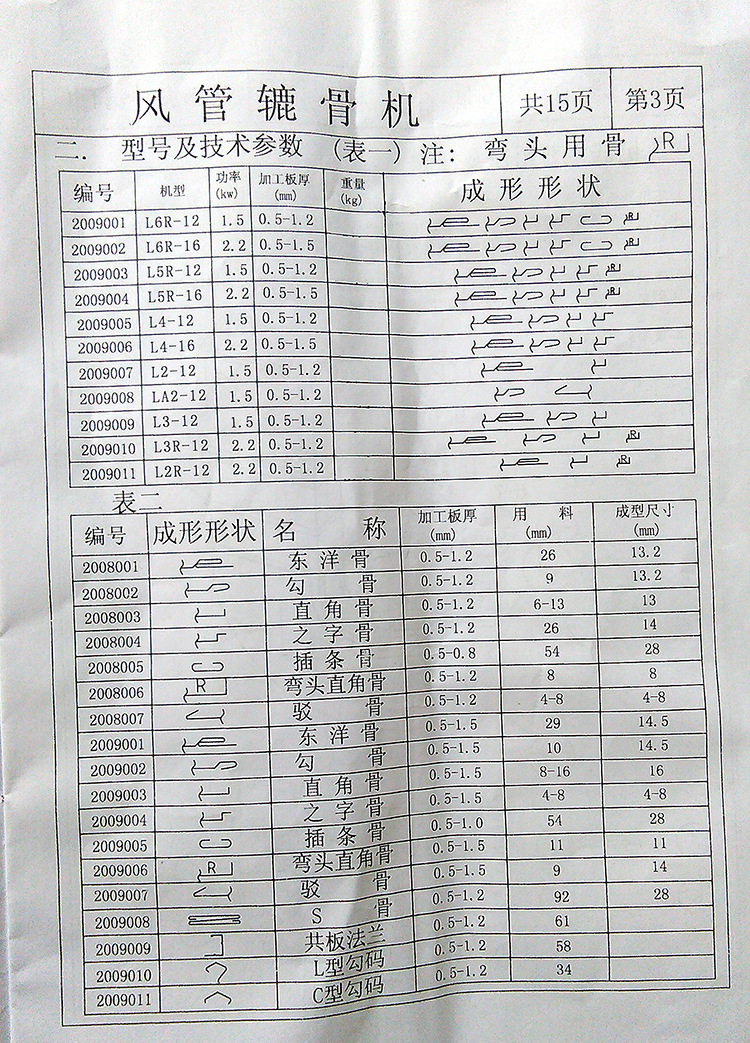 风管辘骨机 共15页 第3页
二. 型号及技术参数 (表一) 注: 弯头用骨 R
编号 机型 功率(kw) 加工板厚(mm) 重量(kg) 成形形状
2009001 L6R-12 1.5 0.5-1.2 R
2009002 L6R-16 2.2 0.5-1.5 R
2009003 L5R-12 1.5 0.5-1.2 R
2009004 L5R-16 2.2 0.5-1.5 R
2009005 L4-12 1.5 0.5-1.2
2009006 L4-16 2.2 0.5-1.5
2009007 L2-12 1.5 0.5-1.2
2009008 LA2-12 1.5 0.5-1.2
2009009 L3-12 1.5 0.5-1.2
2009010 L3R-12 2.2 0.5-1.2 R
2009011 L2R-12 2.2 0.5-1.2 R
表二
编号 成形形状 名称 加工板厚(mm) 用料(mm) 成型尺寸(mm)
2008001 东洋骨 0.5-1.2 26 13.2
2008002 勾骨 0.5-1.2 9 13.2
2008003 直角骨 0.5-1.2 6-13 13
2008004 之字骨 0.5-1.2 26 14
2008005 插条骨 0.5-0.8 54 28
2008006 R 弯头直角骨 0.5-1.2 8 8
2008007 驳骨 0.5-1.2 4-8 4-8
2009001 东洋骨 0.5-1.5 29 14.5
2009002 勾骨 0.5-1.5 10 14.5
2009003 直角骨 0.5-1.5 8-16 16
2009004 之字骨 0.5-1.5 4-8 4-8
2009005 插条骨 0.5-1.0 54 28
2009006 R 弯头直角骨 0.5-1.5 11 11
2009007 驳骨 0.5-1.5 9 14
2009008 S骨 0.5-1.2 92 28
2009009 共板法兰 0.5-1.2 61
2009010 L型勾码 0.5-1.2 58
2009011 C型勾码 0.5-1.2 34